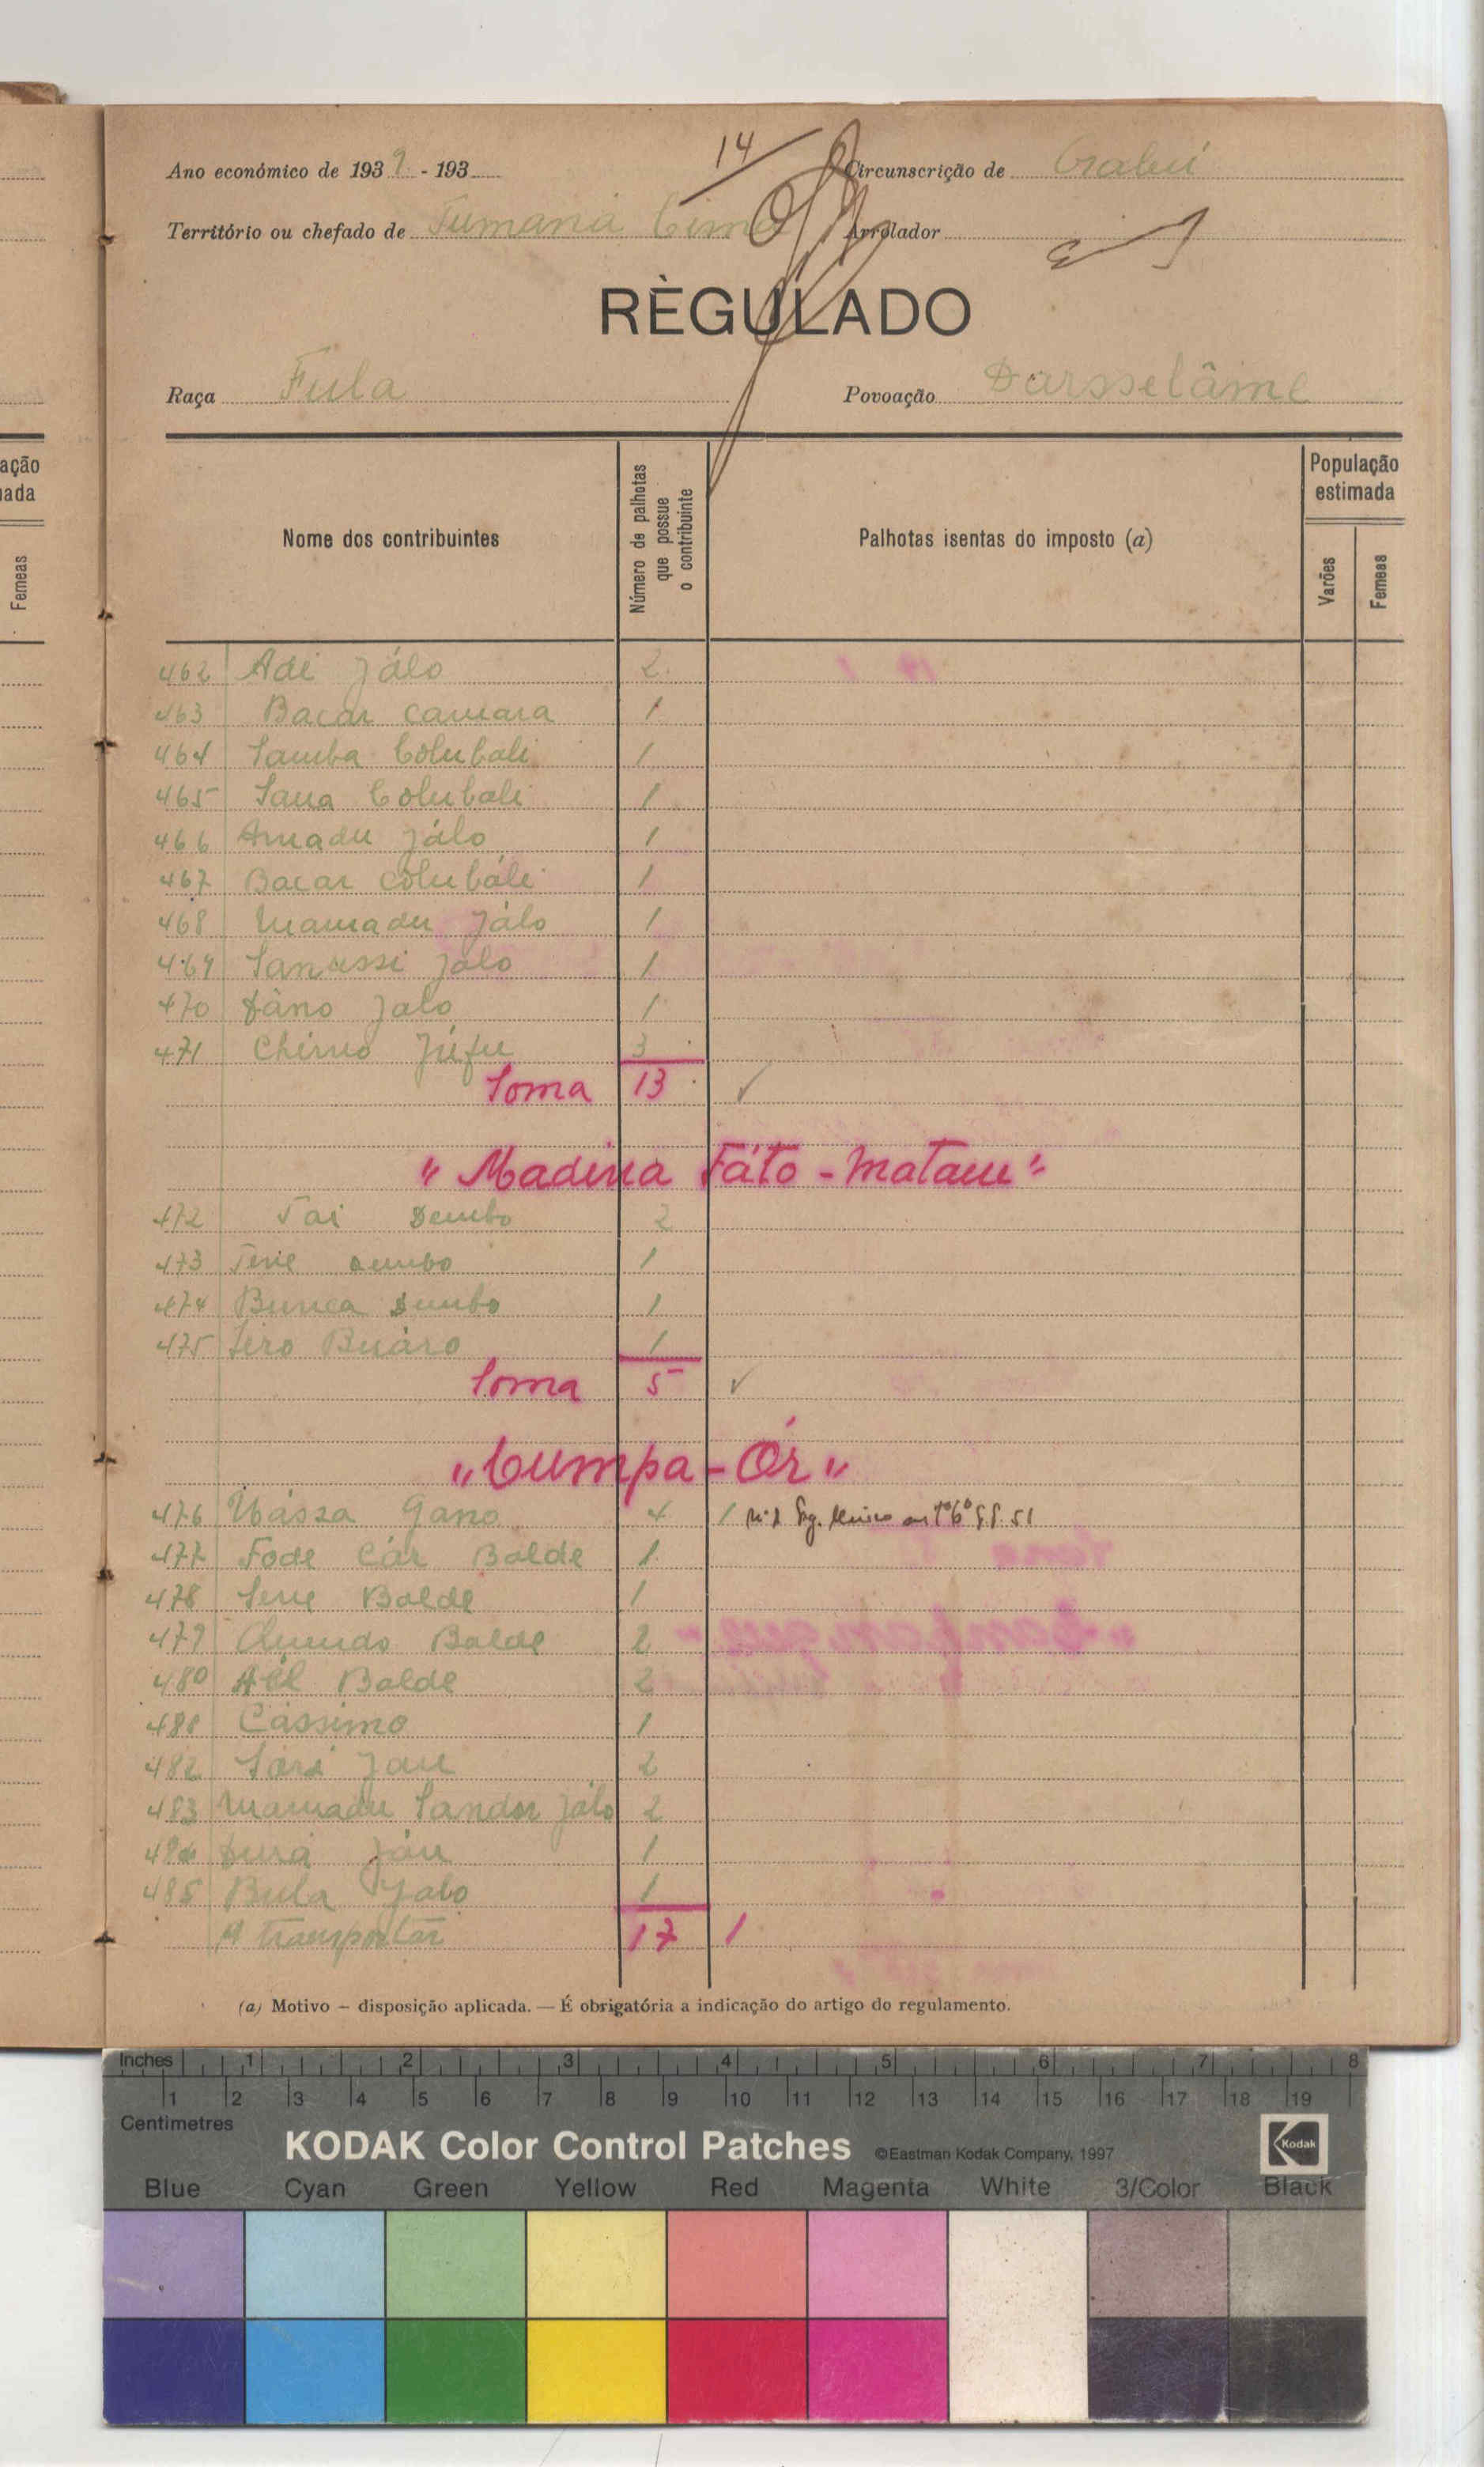 14
Ano económico de 1939 - 193
Circunscrição de Gabú
Território ou chefado de Tumaná Cima
Arrolador
RÈGULADO
Raça Fula
Povoação Darsselâme
ação
ada
Femeas
Nome dos contribuintes
Número de palhotas que possue o contribuinte
Palhotas isentas do imposto (a)
População estimada
Varões
Femeas
462 Adi Jálo 2
463 Bacar camara 1
464 Samba Colubali 1
465 Sana Colubali 1
466 Amadu Jálo 1
467 Bacar Colubáli 1
468 Mamadu Jálo 1
469 Sanussi Jalo 1
470 Dáno Jalo 1
471 Chérno Júfu 3
Soma 13
" Madina Fáto - Matam "
472 Tai Sembo 2
473 1
474 Bunca 1
475 Buáro 1
Soma 5
" Cumpa - Ór "
476 Uássa Gano 4 1
477 Fode Cár Balde 1
478 Balde 1
479 Balde 2
480 Balde 2
481 Cassimo 1
482 2
483 Mamadu Jálo 2
484 1
485 Bula Jalo 1
A transportar 17 1
(a) Motivo – disposição aplicada. — É obrigatória a indicação do artigo do regulamento.
Inches 1 2 3 4 5 6 7 8
1 2 3 4 5 6 7 8 9 10 11 12 13 14 15 16 17 18 19
Centimetres
KODAK Color Control Patches ©Eastman Kodak Company, 1997 Kodak
Blue Cyan Green Yellow Red Magenta White 3/Color Black